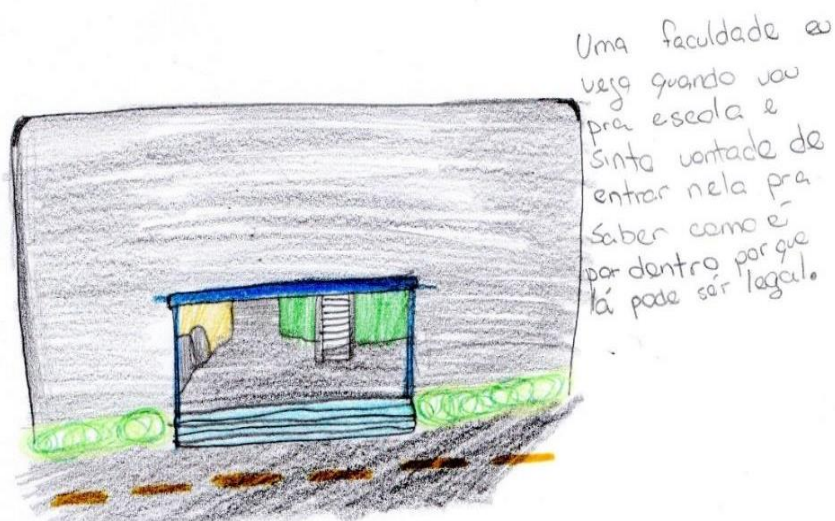 Uma faculdade eu
vejo quando vou
pra escola e
sinto vontade de
entrar nela pra
saber como é
por dentro por que
lá pode ser legal.